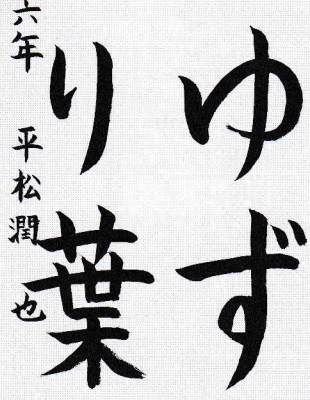 ゆず
り葉
六年 平松潤也